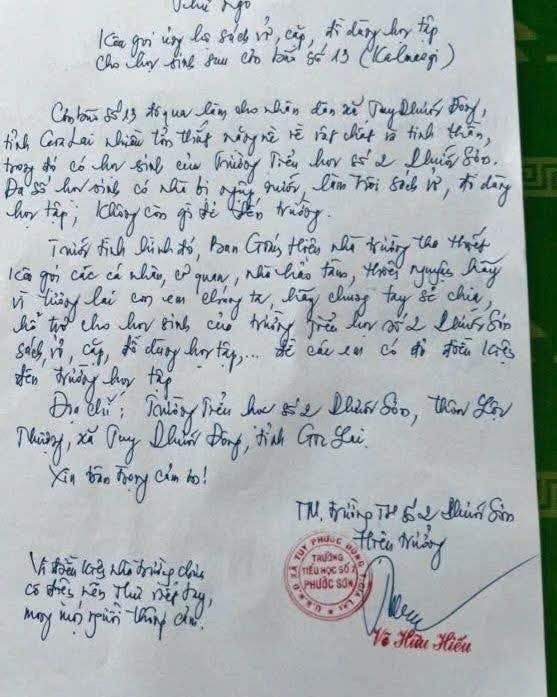 Thư Ngỏ
Kêu gọi ủng hộ sách vở, cặp, đồ dùng học tập
cho học sinh sau cơn bão số 13 (Kalmaegi)
Cơn bão số 13 đã qua làm cho nhân dân xã Tuy Phước Đông,
tỉnh Gia Lai nhiều tổn thất nặng nề về vật chất và tinh thần,
trong đó có học sinh của Trường Tiểu học số 2 Phước Sơn.
Đa số học sinh có nhà bị ngập nước, làm trôi sách vở, đồ dùng
học tập; không còn gì để đến trường.
Trước tình hình đó, Ban Giám Hiệu nhà trường tha thiết
kêu gọi các cá nhân, cơ quan, nhà hảo tâm, thiện nguyện hãy
vì tương lai con em chúng ta, hãy chung tay sẻ chia,
hỗ trợ cho học sinh của trường Tiểu học số 2 Phước Sơn
sách, vở, cặp, đồ dùng học tập,... để các em có đủ điều kiện
đến trường học tập
Địa chỉ: Trường Tiểu học số 2 Phước Sơn, thôn Lộc
Thượng, xã Tuy Phước Đông, tỉnh Gia Lai.
Xin trân trọng cảm ơn!
TM. trường TH số 2 Phước Sơn
Hiệu trưởng
U.B.N.D XÃ TUY PHƯỚC ĐÔNG T.GIA LAI
TRƯỜNG
TIỂU HỌC SỐ 2
PHƯỚC SƠN
Võ Hữu Hiếu
Vì điều kiện nhà trường chưa
có điện nên thư viết tay,
mong mọi người thông cảm.